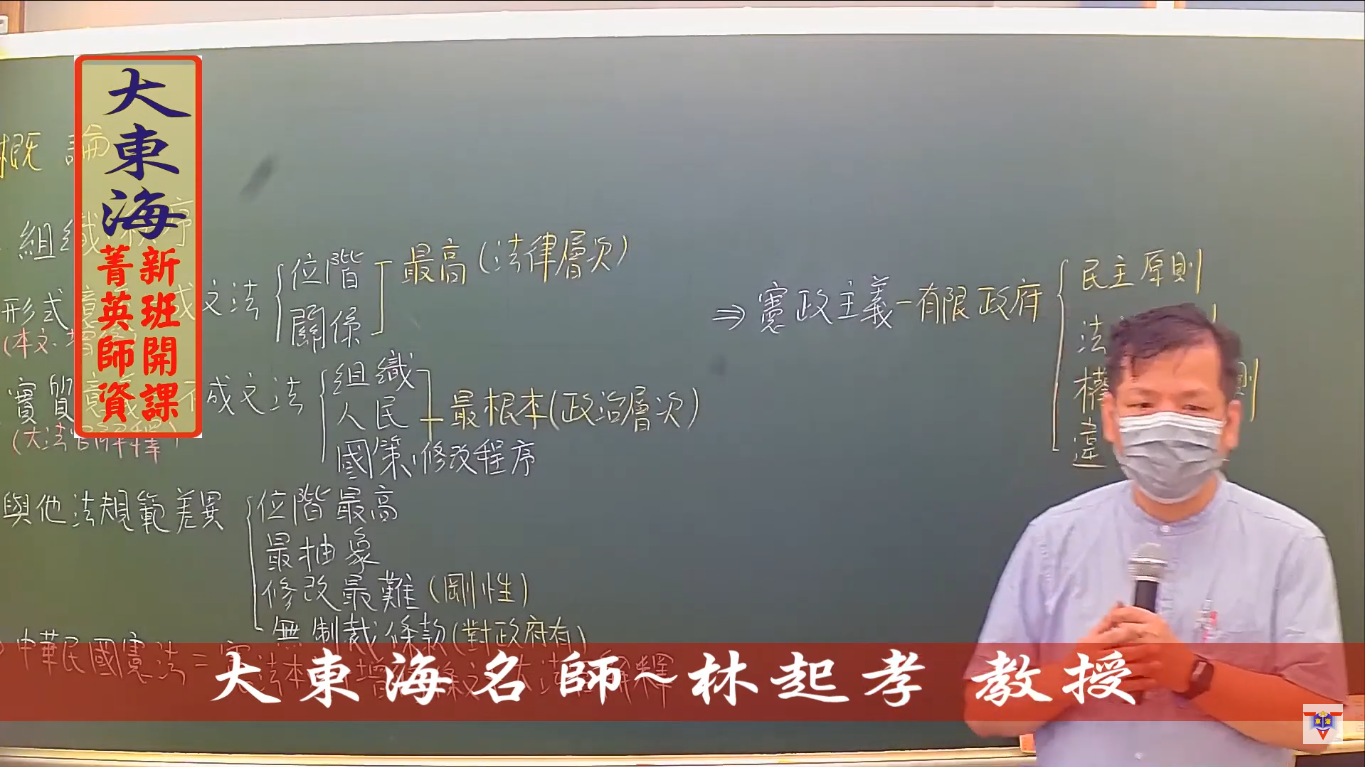 大東海
新班開課
菁英師資
概論
組織 序
形式意 成文法 位階 關係 最高(法律層次)
(本文.增
實質意 不成文法 組織 人民 最根本(政治層次)
國策.修改程序
(大法官解釋)
與他法規範差異 位階最高
最抽象
修改最難(剛性)
無制裁條款(對政府有)
中華民國憲法=憲法本 增 條文 大法 解釋
⇒憲政主義-有限政府 民主原則
法
權 則
違
大東海名師~林起孝 教授